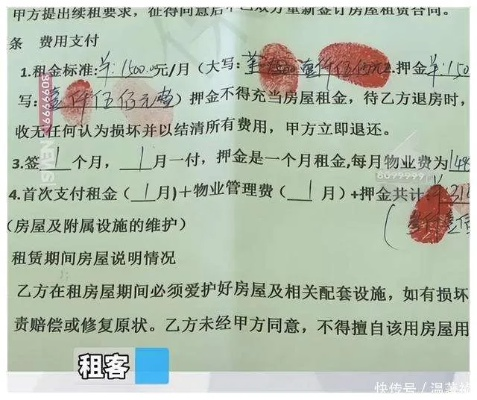 甲方提出续租要求，征得同意后甲乙双方重新签订房屋租赁合同。
条 费用支付
1.租金标准:¥:1500.00元/月（大写: 壹仟伍佰元 2.押金¥:150
写: 壹仟伍佰元整）押金不得充当房屋租金，待乙方退房时，
收无任何认为损坏并以结清所有费用，甲方立即退还。
3.签 1 个月，1 月一付，押金是一个月租金,每月物业费为 149
4.首次支付租金（1 月）＋物业管理费（1 月）+押金共计:¥31
（房屋及附属设施的维护）
租赁期间房屋说明情况
乙方在租房屋期间必须爱护好房屋及相关配套设施，如有损坏
责赔偿或修复原状。乙方未经甲方同意，不得擅自该用房屋用
8099999
NEWS
8099999
租客
快传号／温